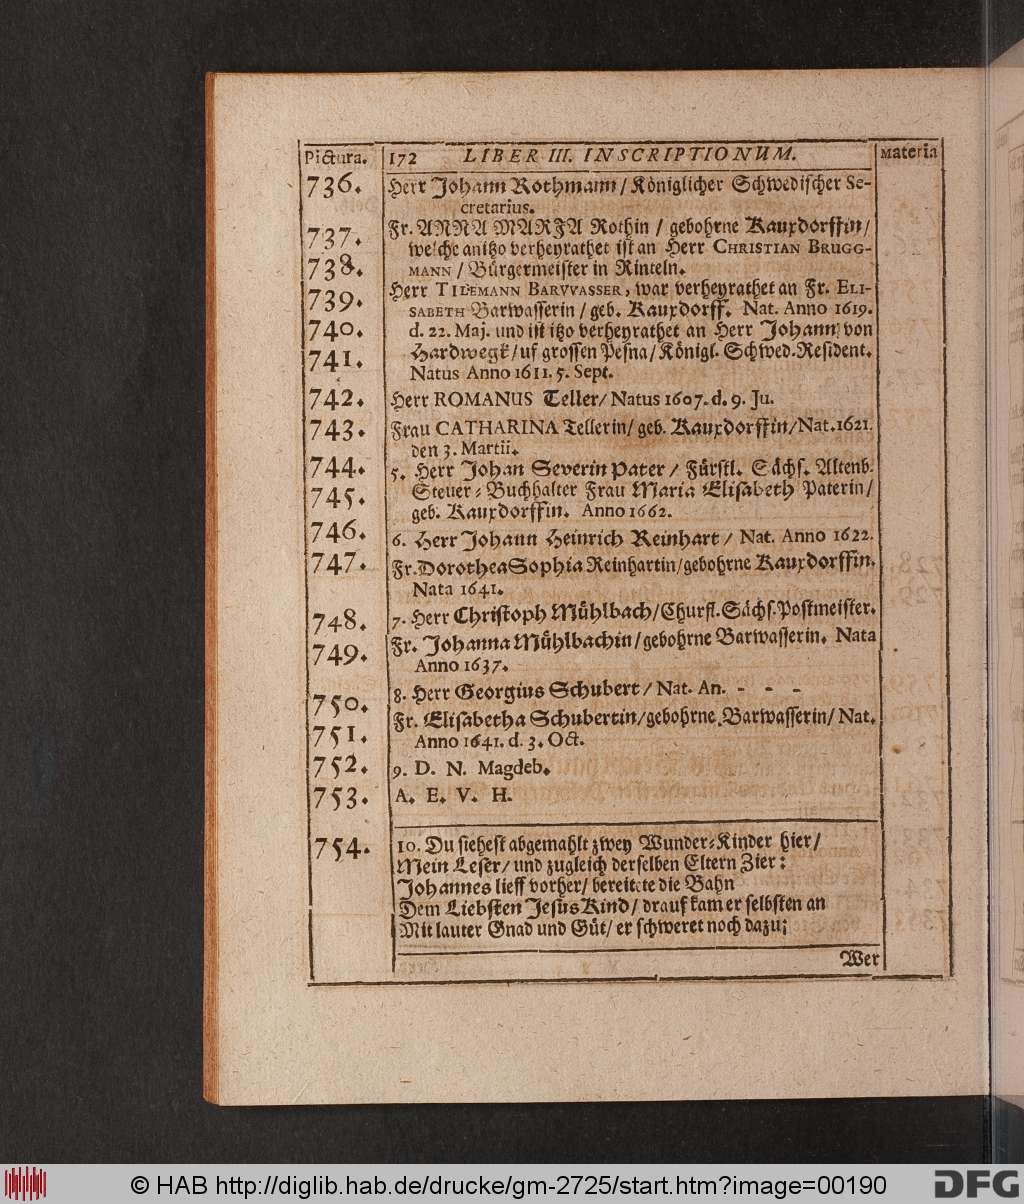 Pictura. 172 LIBER III. INSCRIPTIONUM. Materia
736. Herr Johann Rothmann / Königlicher Schwedischer Se-
cretarius.
737. Fr. ANNA MARIA Rothin / gebohrne Kauxdorffin /
welche anitzo verheyrathet ist an Herr CHRISTIAN BRUGG-
738. MANN / Bürgermeister in Rinteln.
739. Herr TILEMANN BARVVASSER, war verheyrathet an Fr. ELI-
SABETH Barwasserin / geb. Kauxdorff. Nat. Anno 1619.
740. d. 22. Maj. und ist itzo verheyrathet an Herr Johann von
741. Hardwegk / uf grossen Pesna / Königl. Schwed. Resident.
Natus Anno 1611. 5. Sept.
742. Herr ROMANUS Teller / Natus 1607. d. 9. Ju.
743. Frau CATHARINA Tellerin / geb. Kauxdorffin / Nat. 1621.
den 3. Martii.
744. 5. Herr Johan Severin Pater / Fürstl. Sächs. Altenb.
745. Steuer-Buchhalter Frau Maria Elisabeth Paterin /
geb. Kauxdorffin. Anno 1662.
746. 6. Herr Johann Heinrich Reinhart / Nat. Anno 1622.
747. Fr. Dorothea Sophia Reinhartin / gebohrne Kauxdorffin.
Nata 1641.
748. 7. Herr Christoph Mühlbach / Churfl. Sächs. Postmeister.
749. Fr. Johanna Mühlbachin / gebohrne Barwasserin. Nata
Anno 1637.
750. 8. Herr Georgius Schubert / Nat. An. - - -
751. Fr. Elisabetha Schubertin / gebohrne Barwasserin / Nat.
Anno 1641. d. 3. Oct.
752. 9. D. N. Magdeb.
753. A. E. V. H.
754. 10. Du siehest abgemahlt zwey Wunder-Kinder hier /
Mein Leser / und zugleich derselben Eltern Zier:
Johannes lieff vorher / bereitete die Bahn
Dem Liebsten Jesus Kind / drauf kam er selbsten an
Mit lauter Gnad und Güt / er schweret noch dazu;
Wer
© HAB http://diglib.hab.de/drucke/gm-2725/start.htm?image=00190
DFG